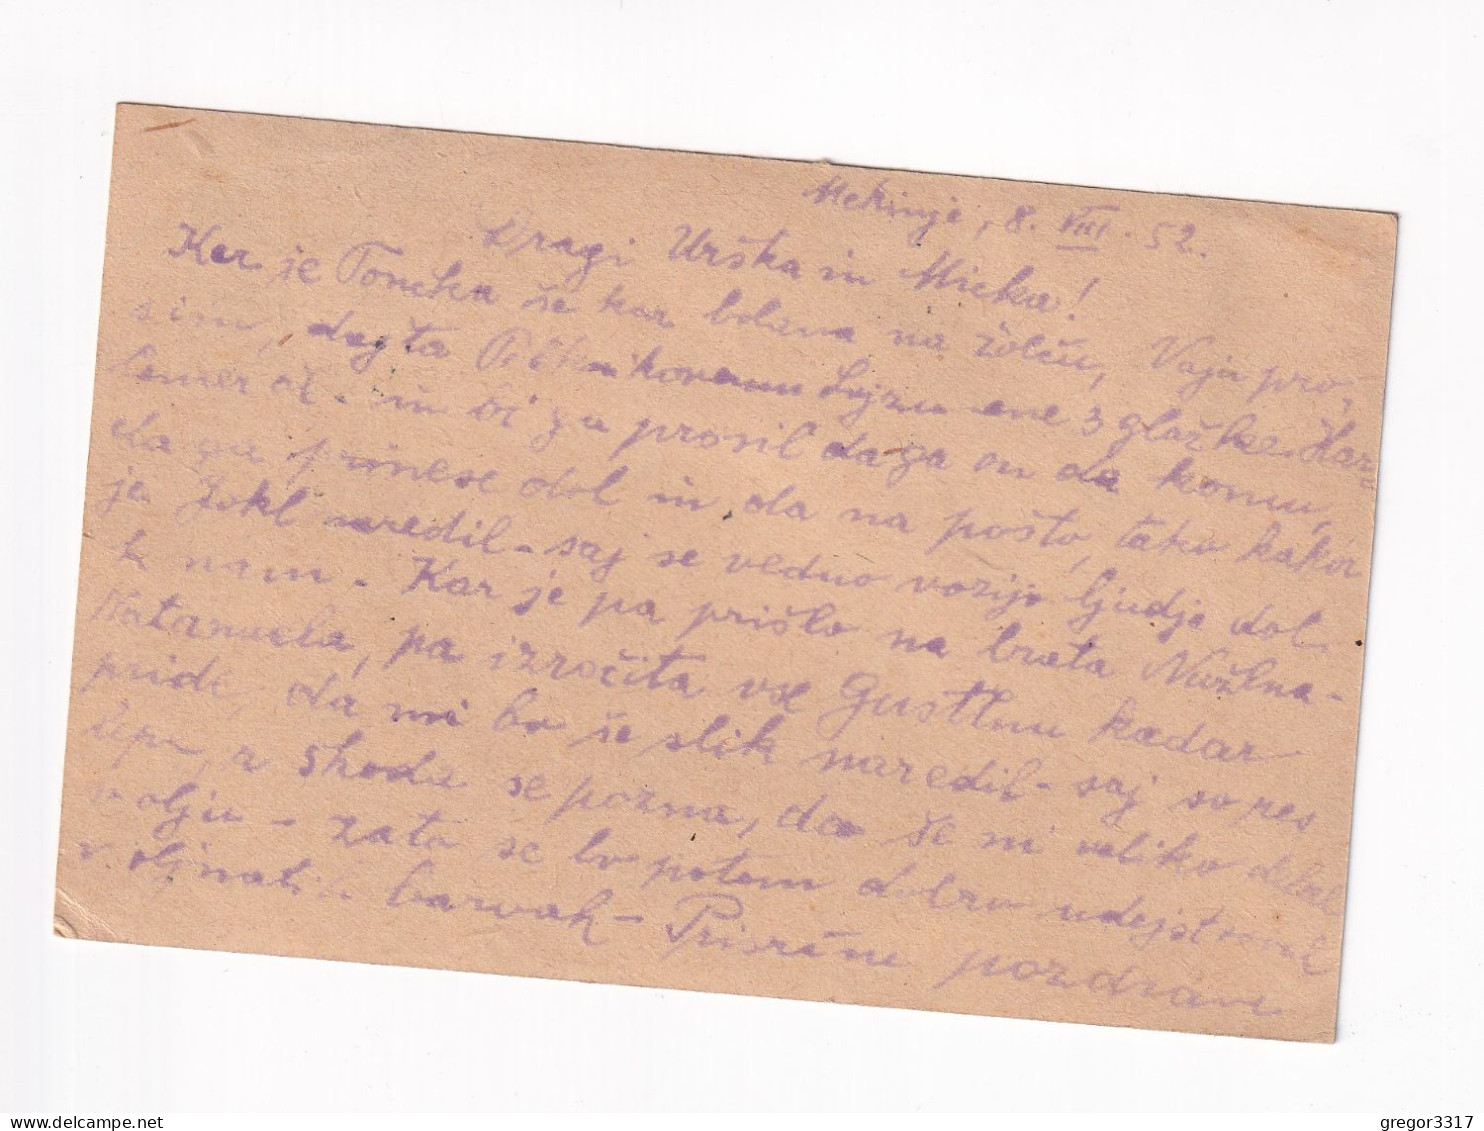 Mekinje, 8. VIII. 52.
Dragi Urška in Micka!
Ker je Tončka še kar bolana na žolču, Vaju pro,
sim, dajta Lojzu ene 3 glažke
in bi ga prosil da ga on da komu,
da ga prinese dol in da na pošto, tako kakor
je naredil - saj se vedno vozijo ljudje dol
k nam. Kar je pa prišlo na brata
pa izročita vse Gustlnu kadar
pride, da mi bo še slik naredil - saj so res
lepe, a škoda se pozna, da še ni veliko delal
v olju - zato se bo potem dobro udejstvoval
v oljnati barvah - Prisrčne pozdrave
gregor3317